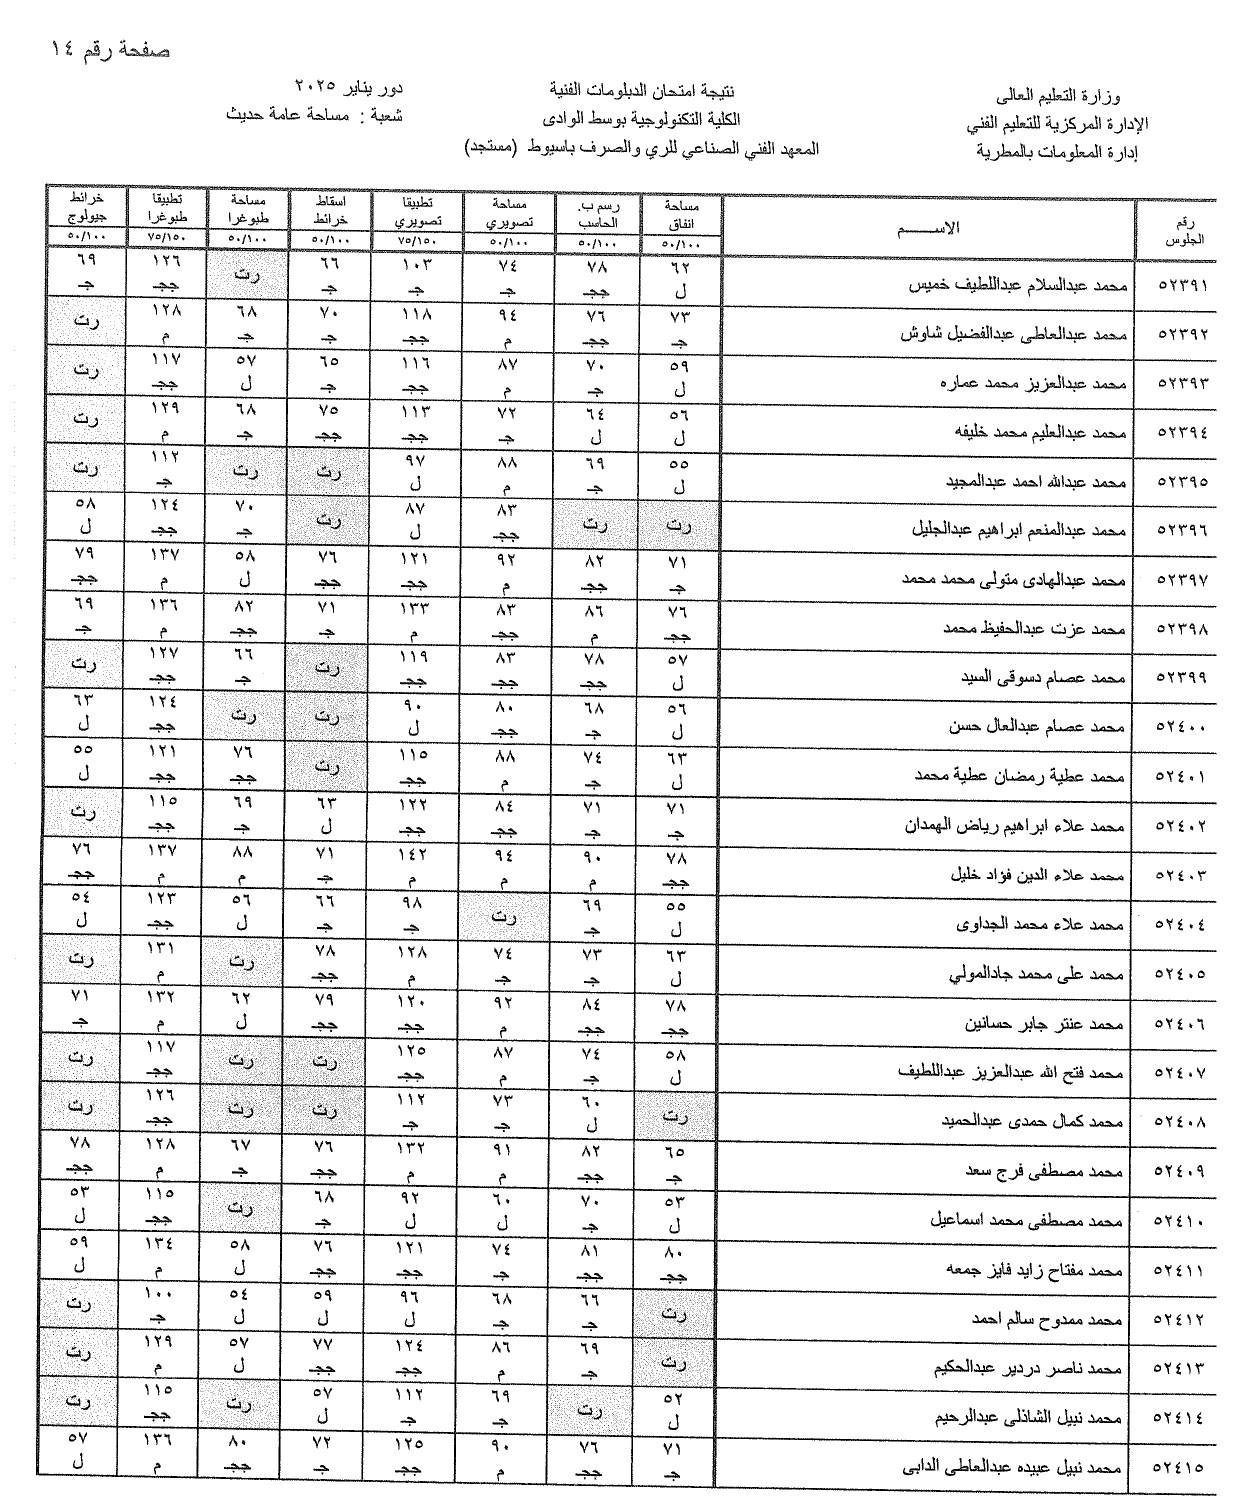 صفحة رقم ١٤
وزارة التعليم العالى
الإدارة المركزية للتعليم الفني
إدارة المعلومات بالمطرية
نتيجة امتحان الدبلومات الفنية
الكلية التكنولوجية بوسط الوادى
المعهد الفني الصناعي للري والصرف باسيوط (مستجد)
دور يناير ٢٠٢٥
شعبة : مساحة عامة حديث
رقم الجلوس | الاســـــم | مساحة انفاق ٥٠/١٠٠ | رسم ب. الحاسب ٥٠/١٠٠ | مساحة تصويري ٥٠/١٠٠ | تطبيقا تصويري ٧٥/١٥٠ | اسقاط خرائط ٥٠/١٠٠ | مساحة طبوغرا ٥٠/١٠٠ | تطبيقا طبوغرا ٧٥/١٥٠ | خرائط جيولوج ٥٠/١٠٠
٥٢٣٩١ | محمد عبدالسلام عبداللطيف خميس | ٦٢ ل | ٧٨ جج | ٧٤ ج | ١٠٣ ج | ٦٦ ج | رت | ١٢٦ جج | ٦٩ ج
٥٢٣٩٢ | محمد عبدالعاطى عبدالفضيل شاوش | ٧٣ ج | ٧٦ جج | ٩٤ م | ١١٨ جج | ٧٠ ج | ٦٨ ج | ١٢٨ م | رت
٥٢٣٩٣ | محمد عبدالعزيز محمد عماره | ٥٩ ل | ٧٠ ج | ٨٧ م | ١١٦ جج | ٦٥ ج | ٥٧ ل | ١١٧ جج | رت
٥٢٣٩٤ | محمد عبدالعليم محمد خليفه | ٥٦ ل | ٦٤ ل | ٧٢ ج | ١١٣ جج | ٧٥ جج | ٦٨ ج | ١٢٩ م | رت
٥٢٣٩٥ | محمد عبدالله احمد عبدالمجيد | ٥٥ ل | ٦٩ ج | ٨٨ م | ٩٧ ل | رت | رت | ١١٢ ج | رت
٥٢٣٩٦ | محمد عبدالمنعم ابراهيم عبدالجليل | رت | رت | ٨٣ جج | ٨٧ ل | رت | ٧٠ ج | ١٢٤ جج | ٥٨ ل
٥٢٣٩٧ | محمد عبدالهادى متولى محمد محمد | ٧١ ج | ٨٢ جج | ٩٢ م | ١٢١ جج | ٧٦ جج | ٥٨ ل | ١٣٧ م | ٧٩ جج
٥٢٣٩٨ | محمد عزت عبدالحفيظ محمد | ٧٦ جج | ٨٦ م | ٨٣ جج | ١٣٣ م | ٧١ ج | ٨٢ جج | ١٣٦ م | ٦٩ ج
٥٢٣٩٩ | محمد عصام دسوقى السيد | ٥٧ ل | ٧٨ جج | ٨٣ جج | ١١٩ جج | رت | ٦٦ ج | ١٢٧ جج | رت
٥٢٤٠٠ | محمد عصام عبدالعال حسن | ٥٦ ل | ٦٨ ج | ٨٠ جج | ٩٠ ل | رت | رت | ١٢٤ جج | ٦٣ ل
٥٢٤٠١ | محمد عطية رمضان عطية محمد | ٦٣ ل | ٧٤ ج | ٨٨ م | ١١٥ جج | رت | ٧٦ جج | ١٢١ جج | ٥٥ ل
٥٢٤٠٢ | محمد علاء ابراهيم رياض الهمدان | ٧١ ج | ٧١ ج | ٨٤ جج | ١٢٢ جج | ٦٣ ل | ٦٩ ج | ١١٥ جج | رت
٥٢٤٠٣ | محمد علاء الدين فؤاد خليل | ٧٨ جج | ٩٠ م | ٩٤ م | ١٤٢ م | ٧١ ج | ٨٨ م | ١٣٧ م | ٧٦ جج
٥٢٤٠٤ | محمد علاء محمد الجداوى | ٥٥ ل | ٦٩ ج | رت | ٩٨ ج | ٦٦ ج | ٥٦ ل | ١٢٣ جج | ٥٤ ل
٥٢٤٠٥ | محمد على محمد جادالمولي | ٦٣ ل | ٧٣ ج | ٧٤ ج | ١٢٨ م | ٧٨ جج | رت | ١٣١ م | رت
٥٢٤٠٦ | محمد عنتر جابر حسانين | ٧٨ جج | ٨٤ جج | ٩٢ م | ١٢٠ جج | ٧٩ جج | ٦٢ ل | ١٣٢ م | ٧١ ج
٥٢٤٠٧ | محمد فتح الله عبدالعزيز عبداللطيف | ٥٨ ل | ٧٤ ج | ٨٧ م | ١٢٥ جج | رت | رت | ١١٧ جج | رت
٥٢٤٠٨ | محمد كمال حمدى عبدالحميد | رت | ٦٠ ل | ٧٣ ج | ١١٢ ج | رت | رت | ١٢٦ جج | رت
٥٢٤٠٩ | محمد مصطفى فرج سعد | ٦٥ ج | ٨٢ جج | ٩١ م | ١٣٢ م | ٧٦ جج | ٦٧ ج | ١٢٨ م | ٧٨ جج
٥٢٤١٠ | محمد مصطفى محمد اسماعيل | ٥٣ ل | ٧٠ ج | ٦٠ ل | ٩٢ ل | ٦٨ ج | رت | ١١٥ جج | ٥٣ ل
٥٢٤١١ | محمد مفتاح زايد فايز جمعه | ٨٠ جج | ٨١ جج | ٧٤ ج | ١٢١ جج | ٧٦ جج | ٥٨ ل | ١٣٤ م | ٥٩ ل
٥٢٤١٢ | محمد ممدوح سالم احمد | رت | ٦٦ ج | ٦٨ ج | ٩٦ ل | ٥٩ ل | ٥٤ ل | ١٠٠ ج | رت
٥٢٤١٣ | محمد ناصر دردير عبدالحكيم | رت | ٦٩ ج | ٨٦ م | ١٢٤ جج | ٧٧ جج | ٥٧ ل | ١٢٩ م | رت
٥٢٤١٤ | محمد نبيل الشاذلى عبدالرحيم | ٥٢ ل | رت | ٦٩ ج | ١١٢ ج | ٥٧ ل | رت | ١١٥ جج | رت
٥٢٤١٥ | محمد نبيل عبيده عبدالعاطى الدابى | ٧١ ج | ٧٦ جج | ٩٠ م | ١٢٥ جج | ٧٢ ج | ٨٠ جج | ١٣٦ م | ٥٧ ل